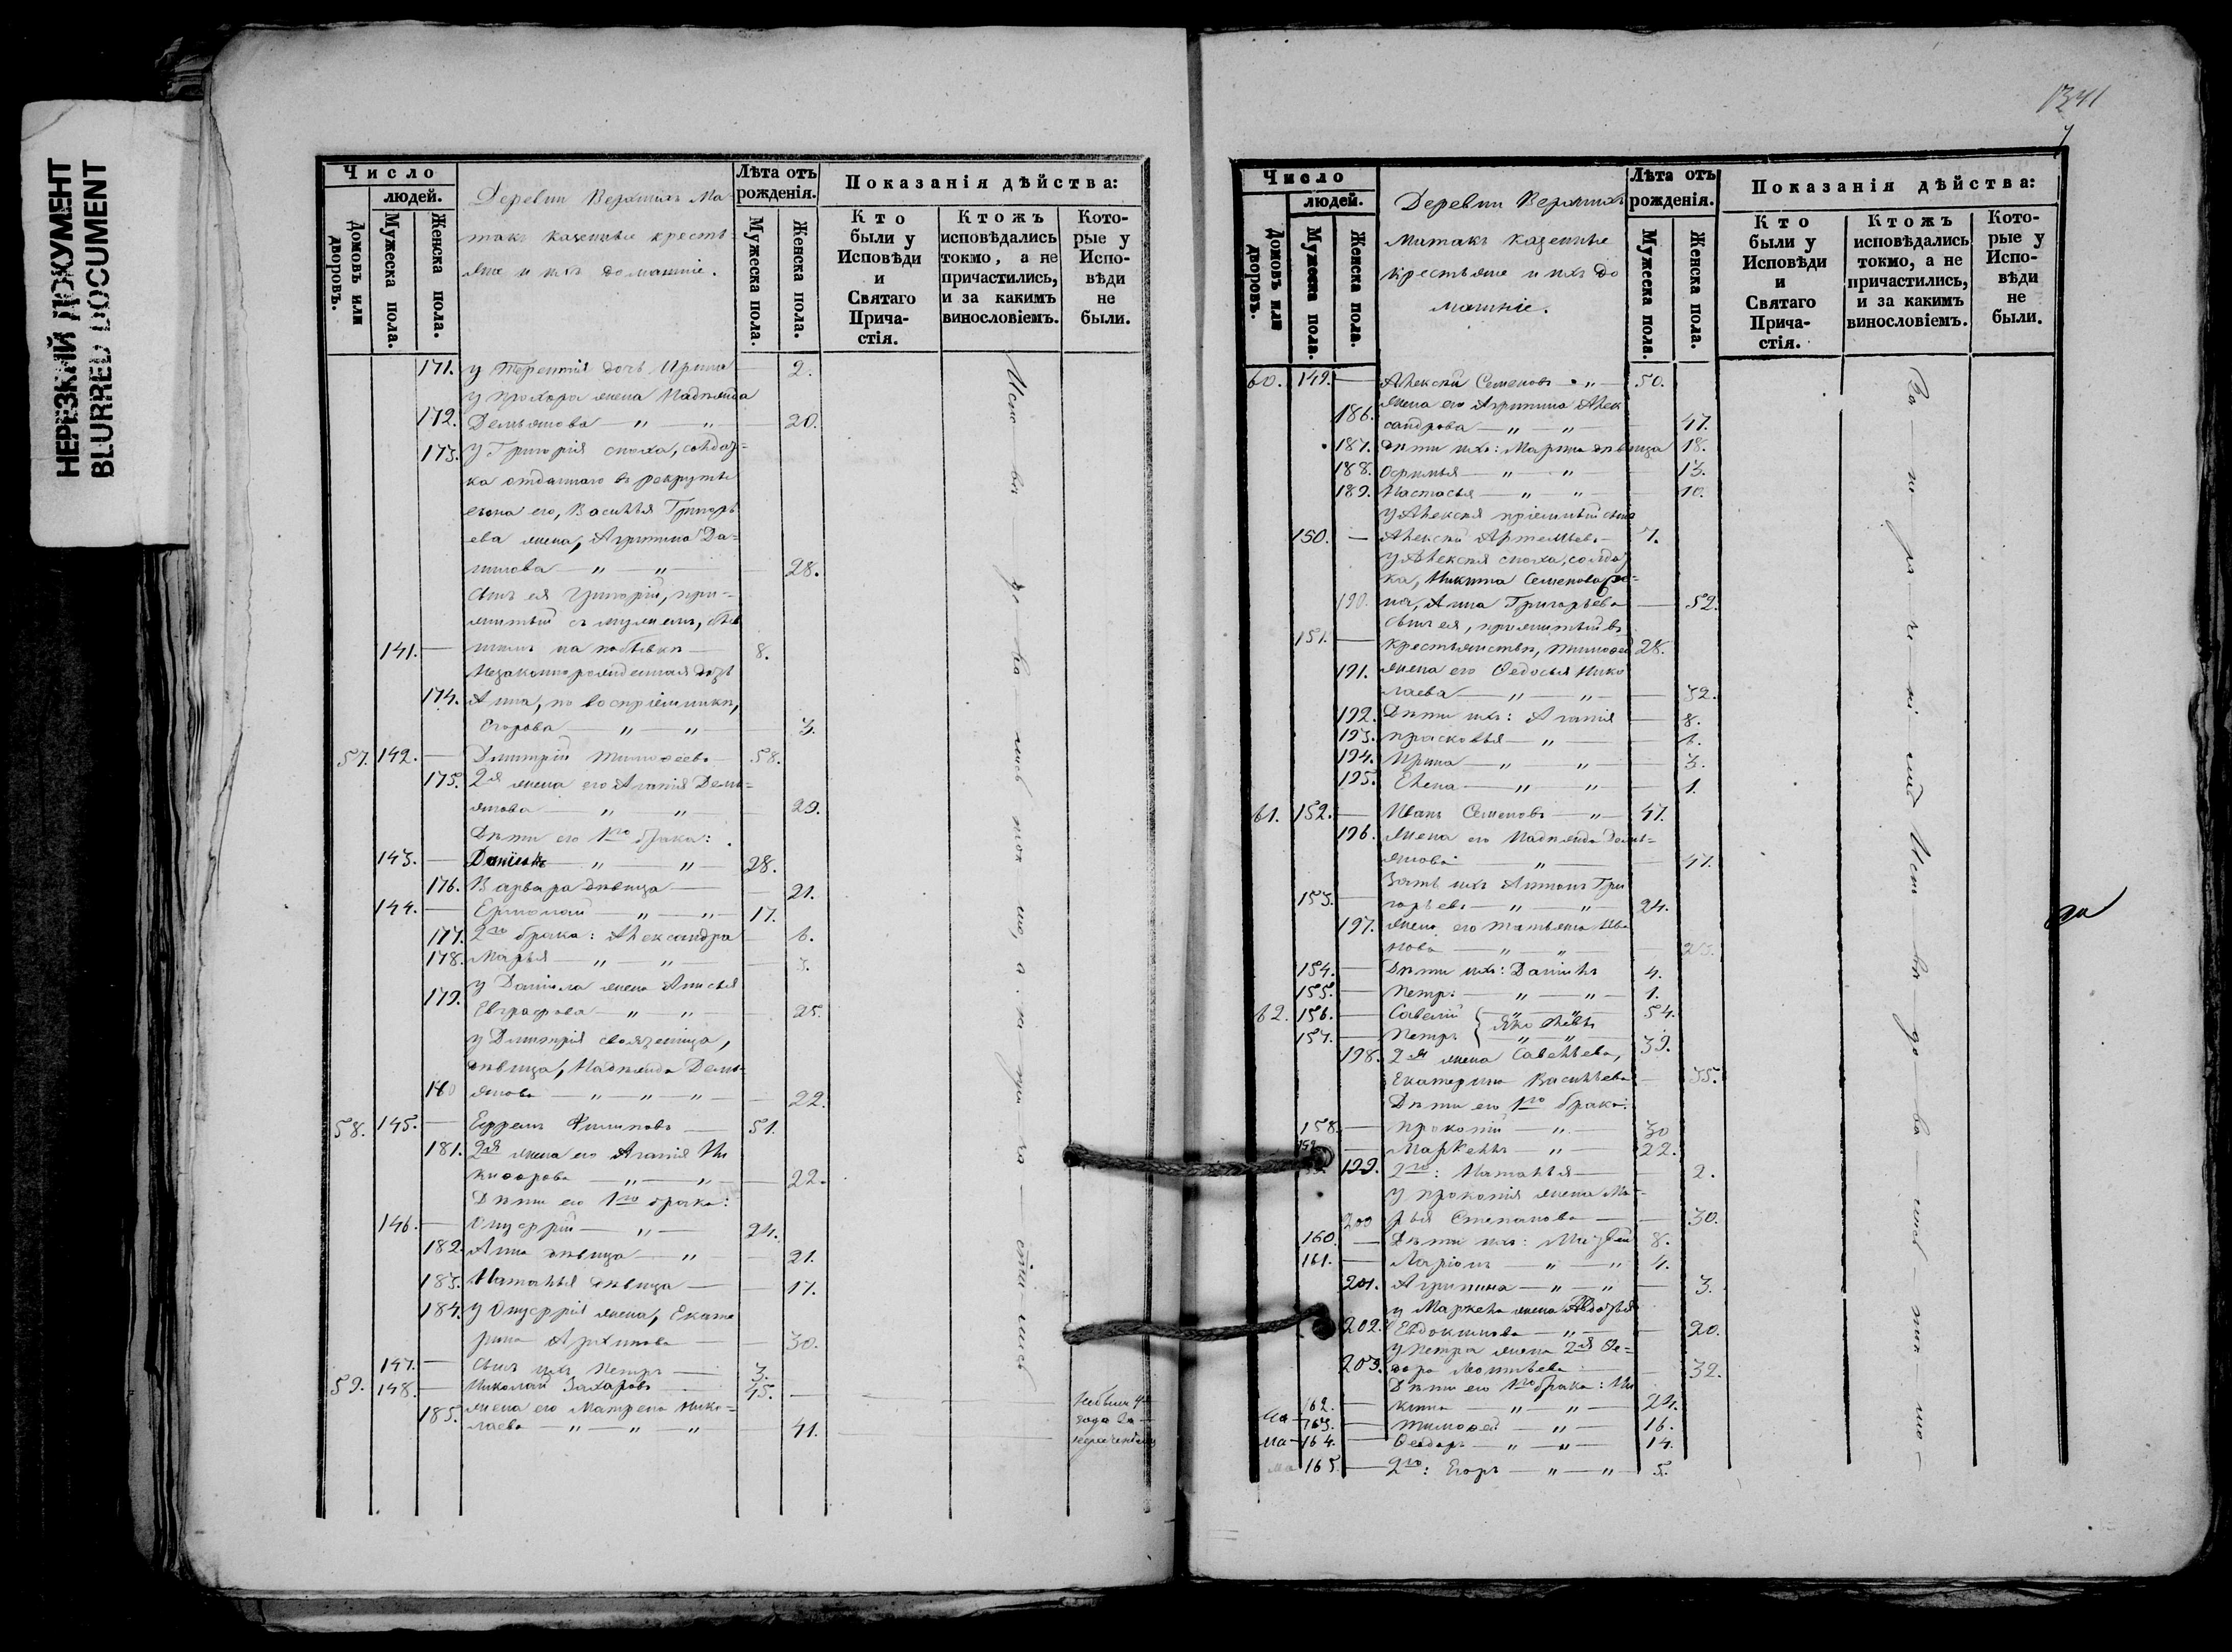 НЕРЕЗКИЙ ДОКУМЕНТ
BLURRED DOCUMENT
Число
людей.
Домовъ или дворовъ.
Мужеска пола.
Женска пола.
Деревни Верхнихъ Ма-
такъ казенные кресть-
яне и ихъ домашніе.
Лѣта отъ рожденія.
Мужеска пола.
Женска пола.
Показанія дѣйства:
Кто были у Исповѣди и Святаго Прича-стія.
Ктожъ исповѣдались токмо, а не причастились, и за какимъ винословіемъ.
Кото-рые у Испо-вѣди не были.
171. у Терентія дочь Ирина — 2.
у Прохора жена Надежда
172. Демьянова — " — " — 20.
173. у Григорія сноха, солдат-
ка отданнаго въ рекруты
сына его, Василья Григорь
ева жена, Агрипина Да-
нилова — " — " — 28.
сынъ ея Григорій, при-
житый съ мужемъ, быв
141. — шимъ на побывкѣ — 8.
Незаконнорожденная дочь
174. Анна, по воспріемникѣ,
Егорова — " — " — 3.
57. 142. — Дмитрій Тимофеевъ — 58.
175. 2я жена его Агапія Демь-
янова — " — " — 29.
Дѣти его 1го брака:
143. — Даніилъ — " — " 28.
176. Варвара дѣвица — 21.
144. — Ермолай — " — " — 17.
177. 2го брака: Александра — 6.
178. Марья — " — " — 3.
у Даніила жена Анисья
179. Евграфова — " — " — 25.
у Дмитрія свояченица,
дѣвица, Надежда Демь-
180 янова — " — " — " — 22.
58. 145. — Ефремъ Филиповъ — 51.
181. 2я жена его Агапія Ни
кифорова — " — " — 22.
Дѣти его 1го брака:
146. — Онуфрій — " — 24.
182. Анна дѣвица — " — 21.
183. Наталья дѣвица — 17.
184. у Онуфрія жена, Екате
рина Архипова — 30.
147. — Сынъ ихъ Петръ — 3.
59. 148. — Николай Захаровъ — 45. —
185. жена его Матрена Нико-
лаева — " — " — " 41.
Испо вѣ до ва лись ток мо, а не при ча сти лись
Небыли 4
года за
нерачен
1341
Число
людей.
Домовъ или дворовъ.
Мужеска пола.
Женска пола.
Деревни Верхнихъ
Матакъ казенные
крестьяне и ихъ до
машніе.
Лѣта отъ рожденія.
Мужеска пола.
Женска пола.
Показанія дѣйства:
Кто были у Исповѣди и Святаго Прича-стія.
Ктожъ исповѣдались токмо, а не причастились, и за какимъ винословіемъ.
Кото-рые у Испо-вѣди не были.
60. 149. — Алексѣй Семеновъ — " — 50.
жена его Агрипина Алек
186. сандрова — " — " — 47.
187. дѣти ихъ: Марина дѣвица 18.
188. Офимья — " — " — 13.
189. Настасья — " — " — 10.
у Алексѣя пріемный сынъ
150. — Алексѣй Артемьевъ — 7.
у Алексѣя сноха, солдат
ка, Никита Семенова же-
190. на, Анна Григорьева — 52.
сынъ ея, прижитый въ
151. — крестьянствѣ, Тимофей 28.
191. жена его Федосья Нико
лаева — " — " — 32.
192. Дѣти ихъ: Агапія — 8.
193. Прасковья — " — 6.
194. Ирина — " — " — 3.
195. Елена — " — " — 1.
61. 152. — Иванъ Семеновъ — " — 47.
196. жена его Надежда Демь-
янова — " — 47.
Зять ихъ Антонъ Гри
153. — горьевъ — " — " — 24.
197. жена его Татьяна Ива
нова — " — " — 23.
154. — Дѣти ихъ: Даніилъ 4.
155. — Петръ — " — " — 1.
62. 156. — Савелій } Яковлевы 54.
157. — Петръ } " — " — 39.
198. 2я жена Савельева,
Екатерина Васильева — 35.
Дѣти его 1го брака:
158. — Прокопій — " — 30
159 — Маркелъ — " — 22.
199. 2го: Наталья — 2.
у Прокопія жена Ма-
200 рья Степанова — 30.
160. — Дѣти ихъ: Матвей 8.
161. — Ларіонъ — " — " 4.
201. Агрипина — " — " — 3.
у Маркела жена Авдотья
202. Евдокимова — " — 20.
у Петра жена 2я Фе-
203. дора Леонтьева — 32.
Дѣти его 1го брака: Ни
162. — кита — " — " — 24.
163. — Тимофей — " — 16.
164. — Феодоръ — " — " — 14.
165. — 2го: Егоръ — " — " — 5.
За не ра че ні емъ Испо вѣ до ва лись